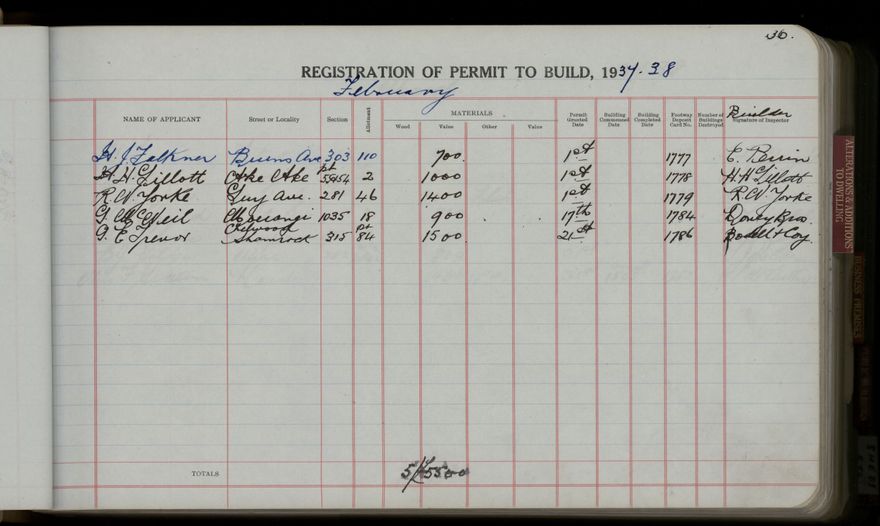 36.
REGISTRATION OF PERMIT TO BUILD, 1937-38
February
NAME OF APPLICANT Street or Locality Section Allotment MATERIALS Wood Value Other Value Permit Granted Date Building Commenced Date Building Completed Date Footway Deposit Card No. Number of Buildings Destroyed Builder Signature of Inspector
H. J. Falkner Buena Ave 303 110 700. 1st 1777 E.
H. H. Tillott Ake Ake pt 2 1000 1st 1778 H. H. Tillott
R. W. Yorke Guy Ave. 281 46 1400 1st 1779 R. W. Yorke
1035 18 900 17th 1784 Bros.
G. E. Trevor Shamrock 315 pt 84 1500. 21st 1786 & Coy.
TOTALS 5/5500
ALTERATIONS & ADDITIONS TO DWELLING
BUSINESS PREMISES